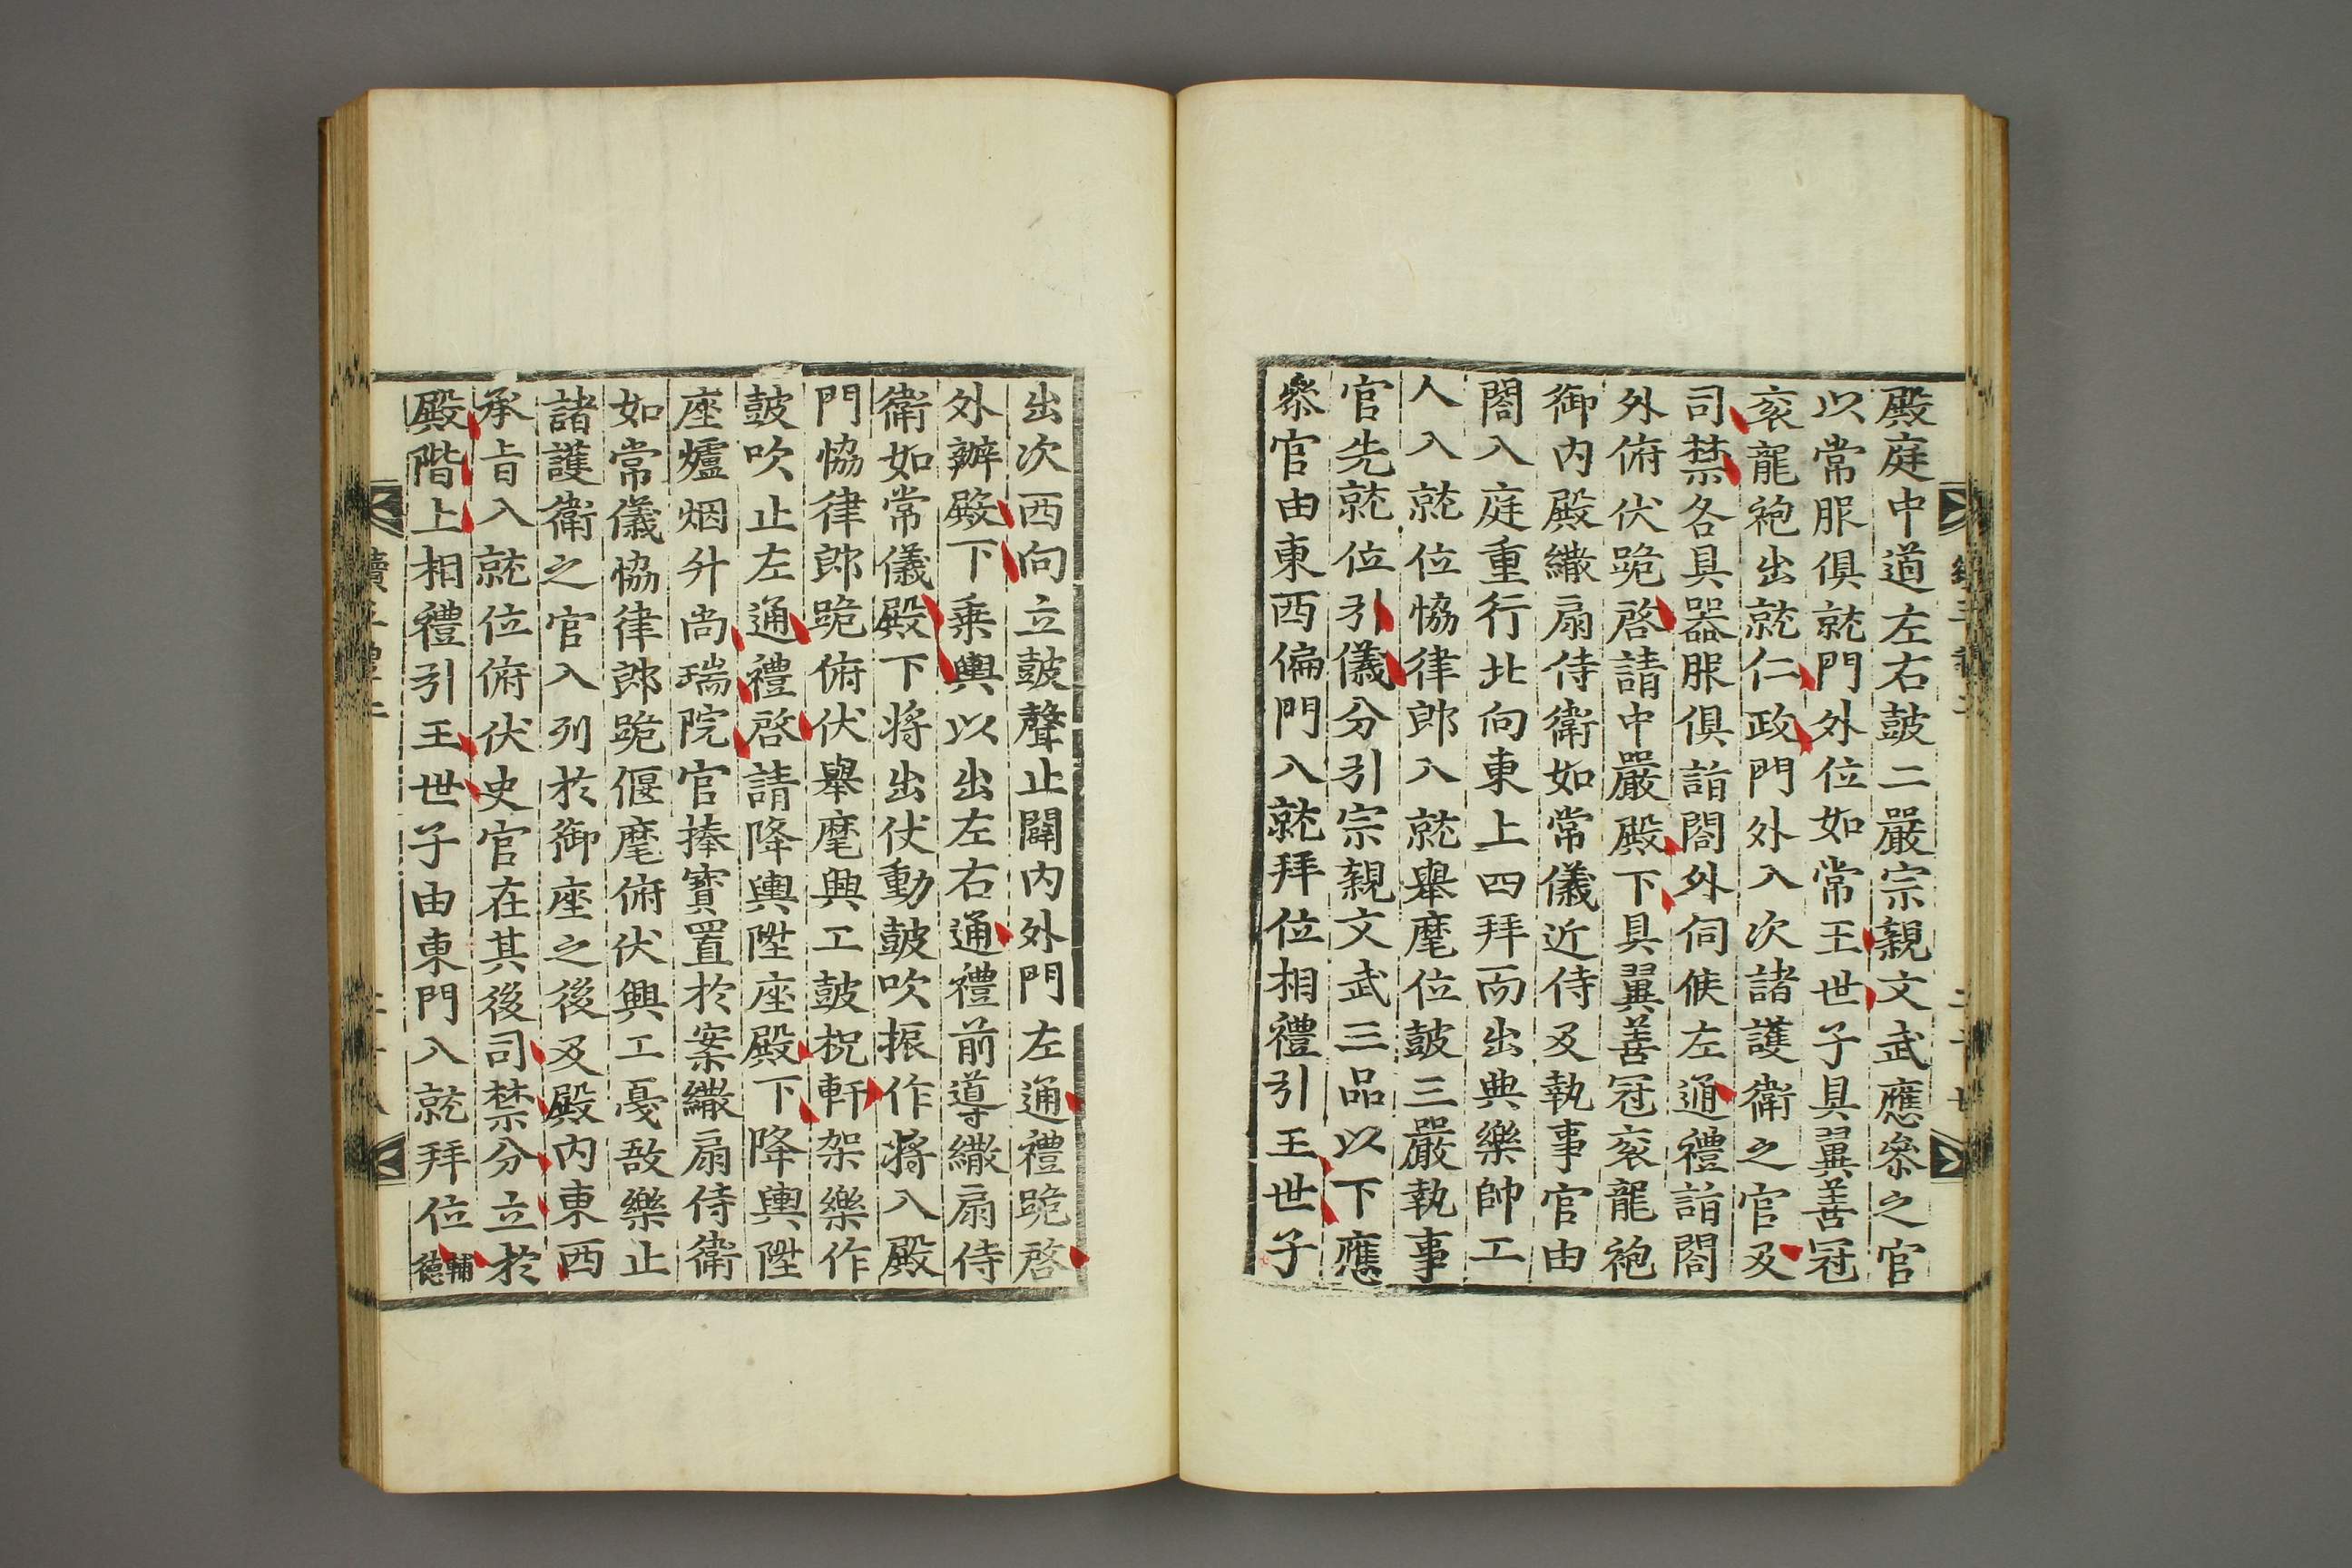 殿庭中道左右鼓二嚴宗親文武應參之官
以常服俱就門外位如常王世子具翼善冠
衮龍袍出就仁政門外入次諸護衛之官及
司禁各具器服俱詣閤外伺候左通禮詣閤
外俯伏跪啓請中嚴殿下具翼善冠衮龍袍
御內殿繖扇侍衛如常儀近侍及執事官由
閤入庭重行北向東上四拜而出典樂帥工
人入就位協律郎入就舉麾位鼓三嚴執事
官先就位引儀分引宗親文武三品以下應
叅官由東西偏門入就拜位相禮引王世子
出次西向立鼓聲止闢內外門左通禮跪啓
外辦殿下乘輿以出左右通禮前導繖扇侍
衛如常儀殿下將出仗動鼓吹振作將入殿
門協律郎跪俯伏舉麾興工鼓柷軒架樂作
鼓吹止左通禮啓請降輿陞座殿下降輿陞
座爐烟升尚瑞院官捧寶置於案繖扇侍衛
如常儀協律郎跪偃麾俯伏興工戞敔樂止
諸護衛之官入列於御座之後及殿內東西
承旨入就位俯伏史官在其後司禁分立於
殿階上相禮引王世子由東門入就拜位輔德